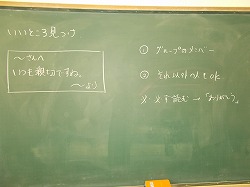 いいところ見つけ
〜さんへ
いつも親切ですね。
〜より
① グループのメンバー
② それ以外の人もOK
必ず読む → 「ありがとう」